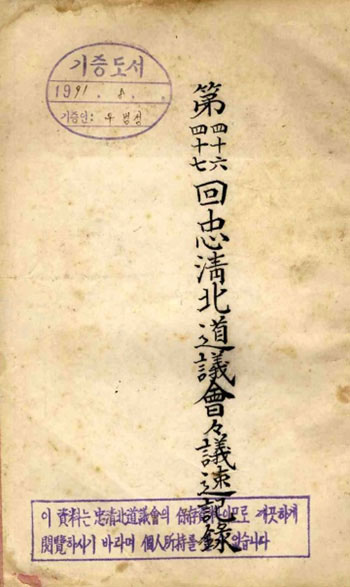 기증도서
1991. 8.
기증인:
第四十六四十七回忠淸北道議會々議速記錄
이 資料는 忠淸北道議會의 保存資料이므로 깨끗하게
閱覽하시기 바라며 個人所持를 없습니다